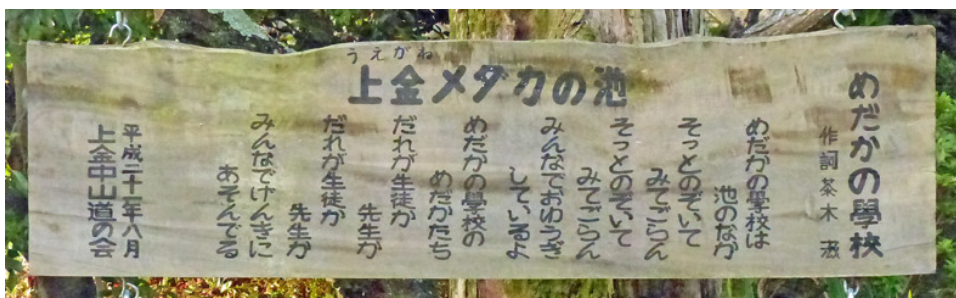 うえがね
上金メダカの池
めだかの學校
作詞 茶木 滋
めだかの學校は
池のなか
そっとのぞいて
みてごらん
そっとのぞいて
みてごらん
みんなでおゆうぎ
しているよ
めだかの學校の
めだかたち
だれが生徒か
先生か
だれが生徒か
先生か
みんなでげんきに
あそんでる
平成二十二年八月
上金中山道の会